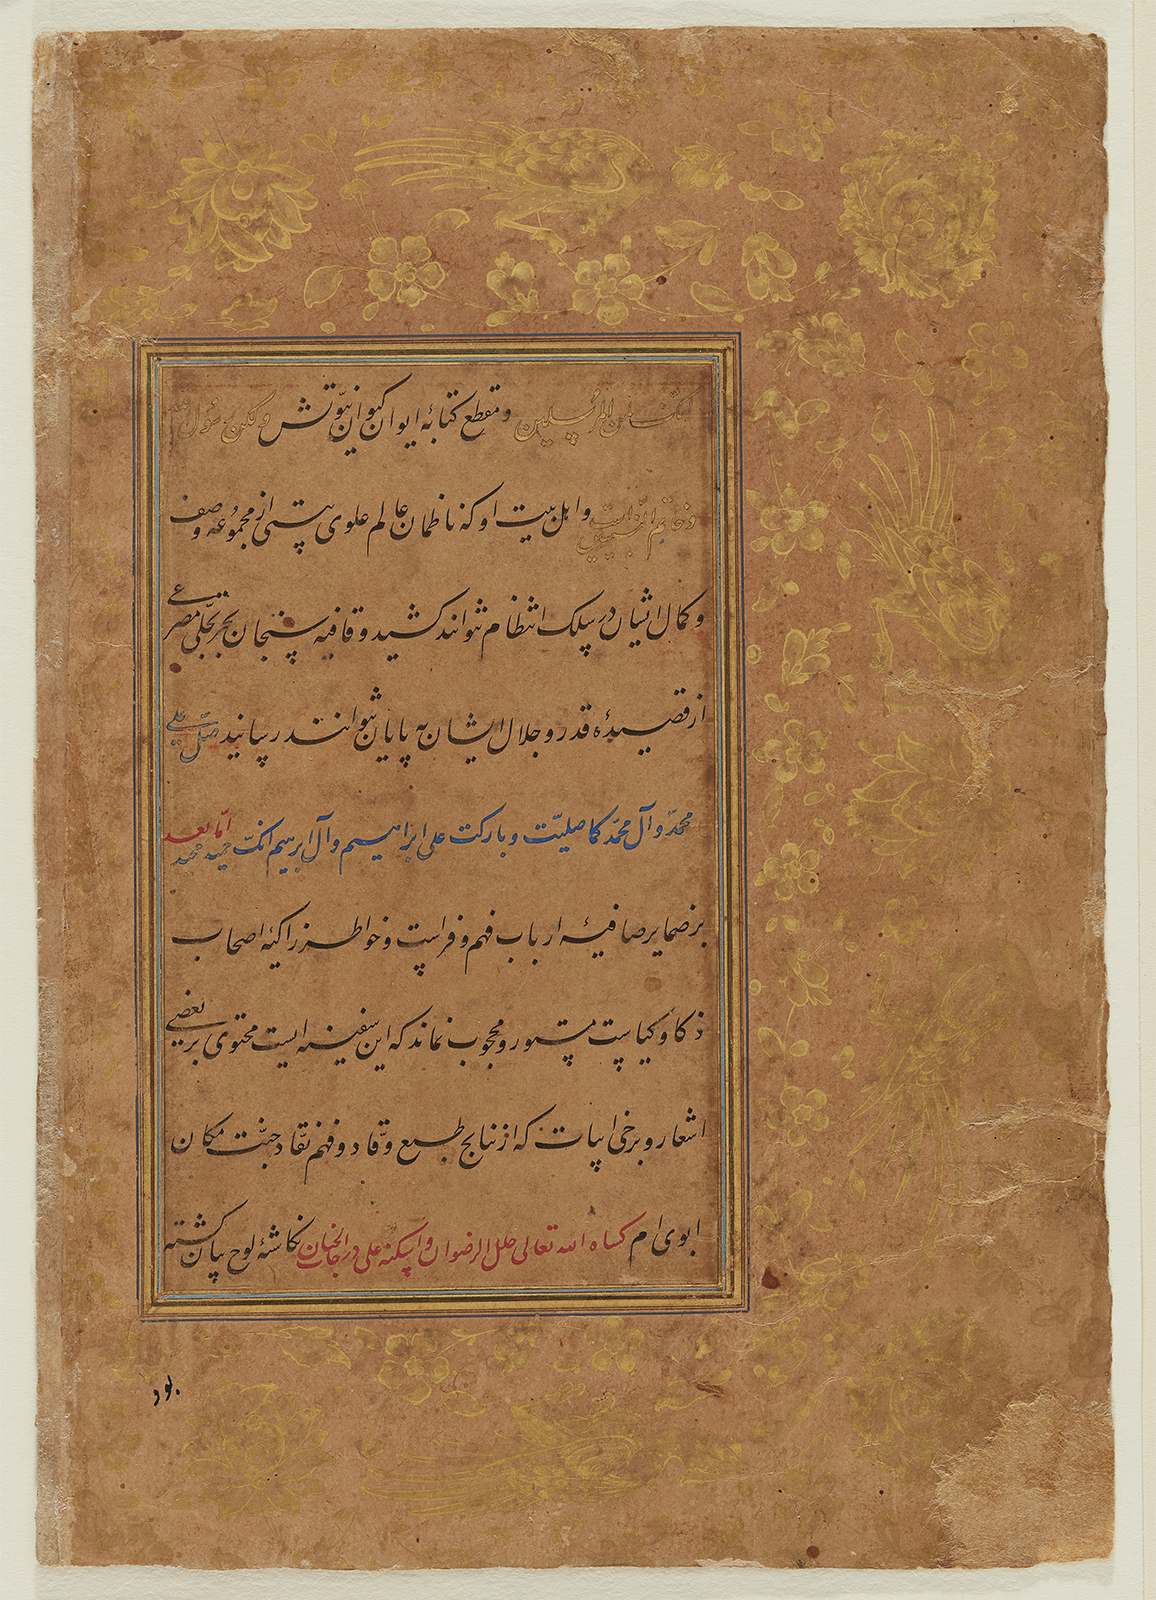 انک لمن المرسلین و مقطع کتابهٔ ایوان کیوان نبوّتش ولکن رسول الله
و خاتم النبیین است و اهل بیت او که ناظمان عالم علوی بیتی از مجموعهٔ وصف
و کمال ایشان در سلک انتظام نتوانند کشید و قافیه سنجان بحر تجلی مصرعی
از قصیدهٔ قدر و جلال ایشان به پایان نتوانند رسانید صلّ علی
محمّد و آل محمّد کما صلیت و بارکت علی ابراهیم و آل ابرهیم انک حمید مجید امّا بعد
بر ضمایر صافیهٔ ارباب فهم و فراست و خواطر زاکیهٔ اصحاب
ذکا و کیاست مستور و محجوب نماند که این سفینه ایست محتوی بر بعضی
اشعار و برخی ابیات که از نتایج طبع وقّاد و فهم نقّاد جنّت مکان
ابوی ام کساه الله تعالی حلل الرضوان و اسکنه علی درجات الجنان نکاشهٔ لوح بیان کشته
بود